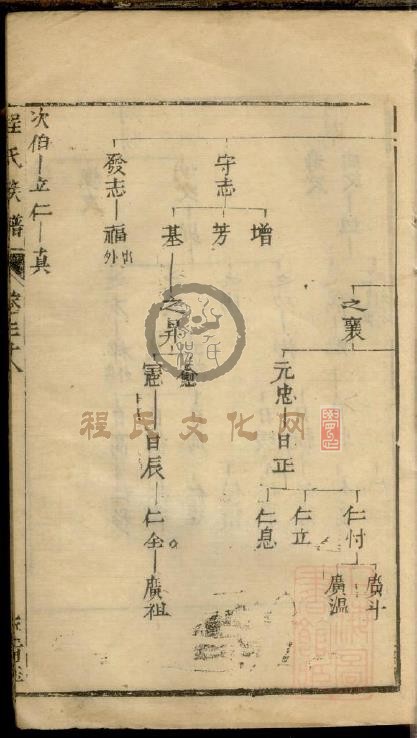 之襄
元忠 日正
仁付
仁立
仁息
廣斗
廣溫
守志
增
芳
基 之昇
憲 日辰 仁全 廣祖
發志 福 出外
次伯 立仁 真
程氏族譜
程氏文化网